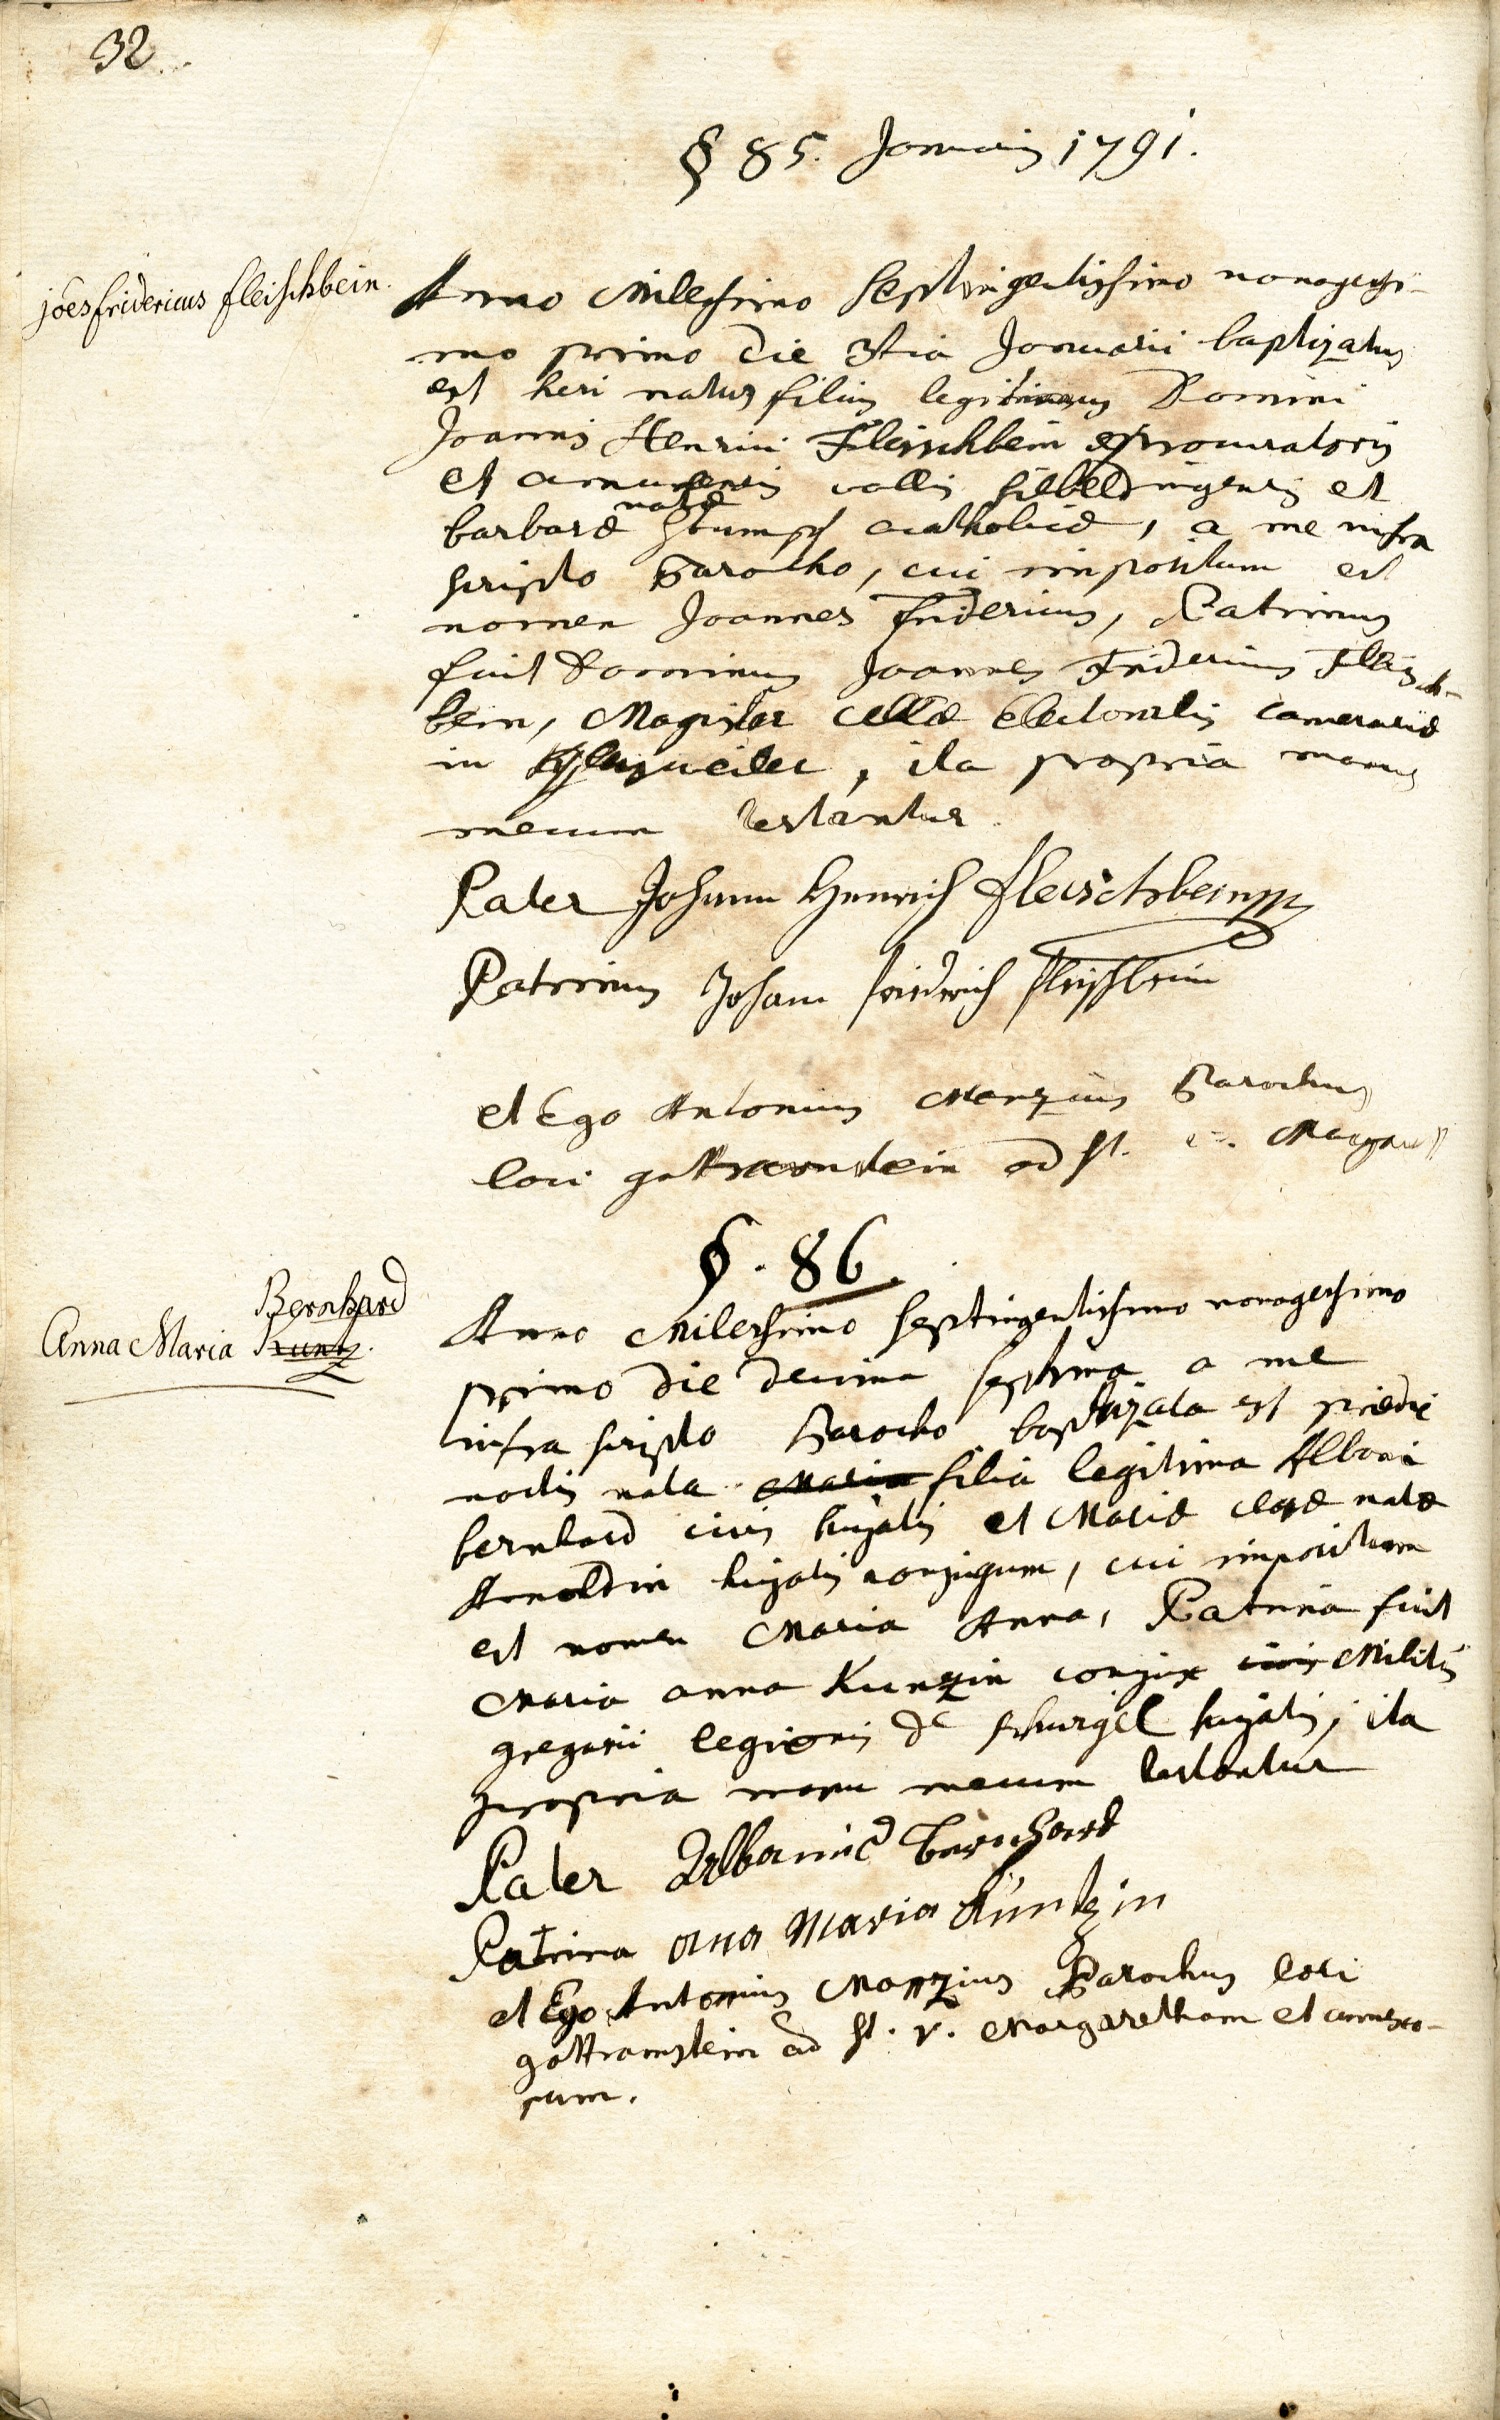 32
§ 85. Januarii 1791.
Joes fridericus fleischbein.
Anno Milessimo Septingentissimo nonagessi-
mo primo die 3tia Januarii baptizatus
est heri natus filius legitimus Domini
Joannis Henrici Fleischbein procuratoris
et vallis siebeldingensis et
natæ
barbaræ Stumpf acatholicæ, a me infra
scripto Parocho, cui impositum est
nomen Joannes Fridericus, Patrinus
fuit Dominus Joannes Fridericus Fleisch-
bein, Magister cellæ Electoralis cameraris
in , ita propria manu
mecum testantur.
Pater Johann Henrich fleischbein
Patrinus Johann friedrich fleischbein
et Ego Antonius Manzius Parochus
loci gottramstein ad St. V. Margar
§. 86.
Bernhard
Anna Maria Kuntz.
Anno Milessimo Septingentissimo nonagessimo
primo die decima septima a me
infra scripto Parocho baptizata est priedie
noctis nata Maria filia legitima Albani
bernhard civis hujatis et Mariæ natæ
Arnoldin hujatis conjugum, cui impositum
est nomen Maria Anna, Patrina fuit
Maria anna Kunzin conjux civis Militis
gregarii legionis de hujatis, ita
propria manu mecum testantur
Pater Albanus Bernhard
Patrina ana Maria Kuntzin
et Ego Antonius Manzius Parochus loci
gottramstein ad St. V. Margaretham et annexo-
rum.